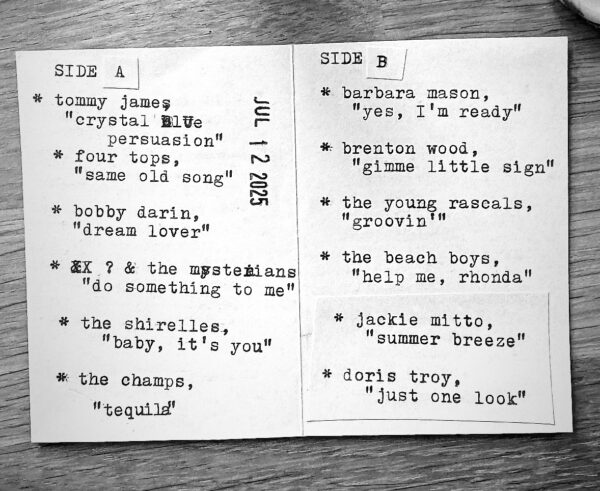 SIDE A
* tommy james,
"crystal Blue
persuasion"
* four tops,
"same old song"
* bobby darin,
"dream lover"
* ? & the mysterians
"do something to me"
* the shirelles,
"baby, it's you"
* the champs,
"tequila"
JUL 12 2025
SIDE B
* barbara mason,
"yes, I'm ready"
* brenton wood,
"gimme little sign"
* the young rascals,
"groovin'"
* the beach boys,
"help me, rhonda"
* jackie mitto,
"summer breeze"
* doris troy,
"just one look"